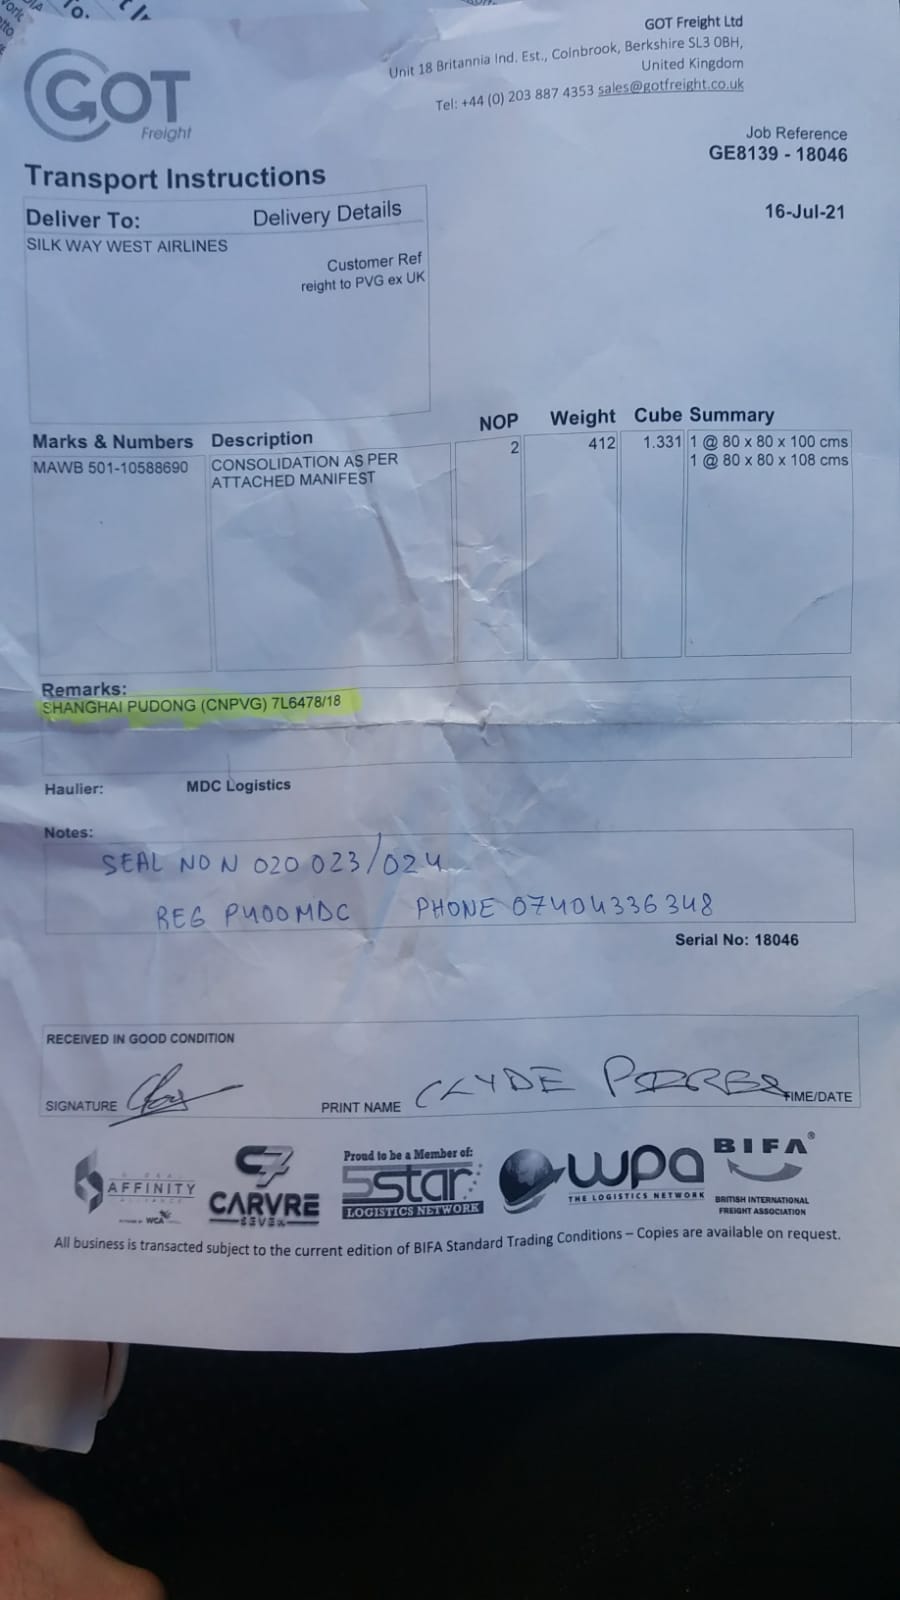 GOT Freight Ltd
Unit 18 Britannia Ind. Est., Colnbrook, Berkshire SL3 0BH,
United Kingdom
Tel: +44 (0) 203 887 4353 sales@gotfreight.co.uk
GOT
Freight
Job Reference
GE8139 - 18046
Transport Instructions
16-Jul-21
Deliver To: Delivery Details
SILK WAY WEST AIRLINES
Customer Ref
reight to PVG ex UK
Marks & Numbers Description NOP Weight Cube Summary
MAWB 501-10588690 CONSOLIDATION AS PER 2 412 1.331 1 @ 80 x 80 x 100 cms
ATTACHED MANIFEST 1 @ 80 x 80 x 108 cms
Remarks:
SHANGHAI PUDONG (CNPVG) 7L6478/18
Haulier: MDC Logistics
Notes:
SEAL NO N 020 023/024
REG P400MDC PHONE 07404336348
Serial No: 18046
RECEIVED IN GOOD CONDITION
SIGNATURE PRINT NAME CLYDE TIME/DATE
AFFINITY
WCA
C7
CARVRE
SEVEN
Proud to be a Member of:
5star
LOGISTICS NETWORK
wpa
THE LOGISTICS NETWORK
BIFA®
BRITISH INTERNATIONAL
FREIGHT ASSOCIATION
All business is transacted subject to the current edition of BIFA Standard Trading Conditions – Copies are available on request.